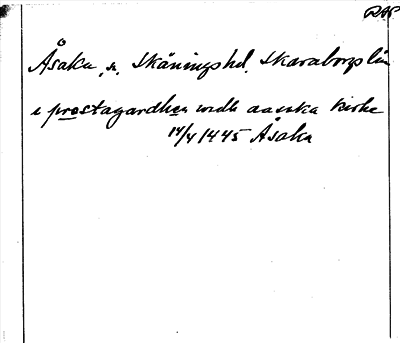 RAP
Åsaka, s. Skånings hd. Skaraborgs län
i prostagardhen widh aasaka kirke
14/4 1445 Åsaka